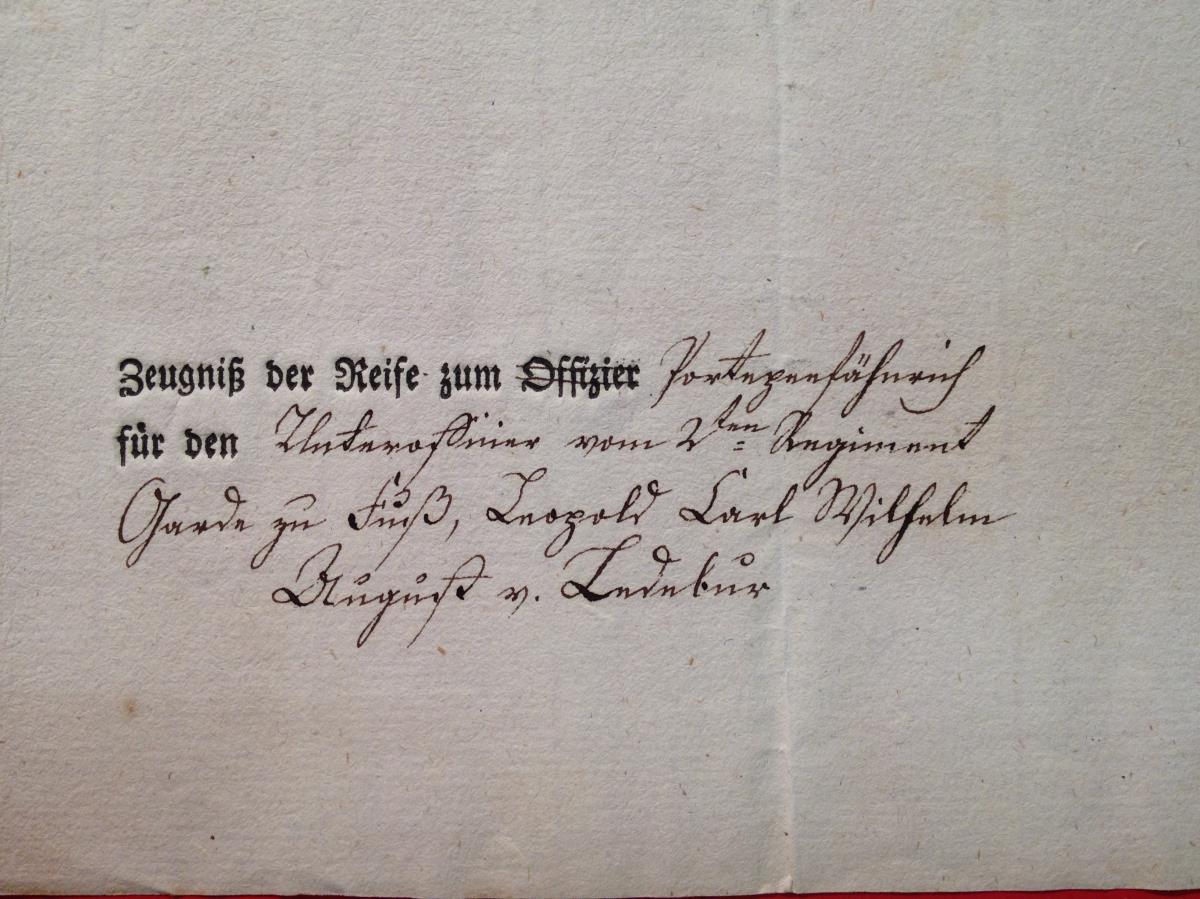 Zeugniß der Reife zum Offizier Portepeefähnrich
für den Unterofficier vom 2ten Regiment
Garde zu Fuß, Leopold Carl Wilhelm
August v. Ledebur